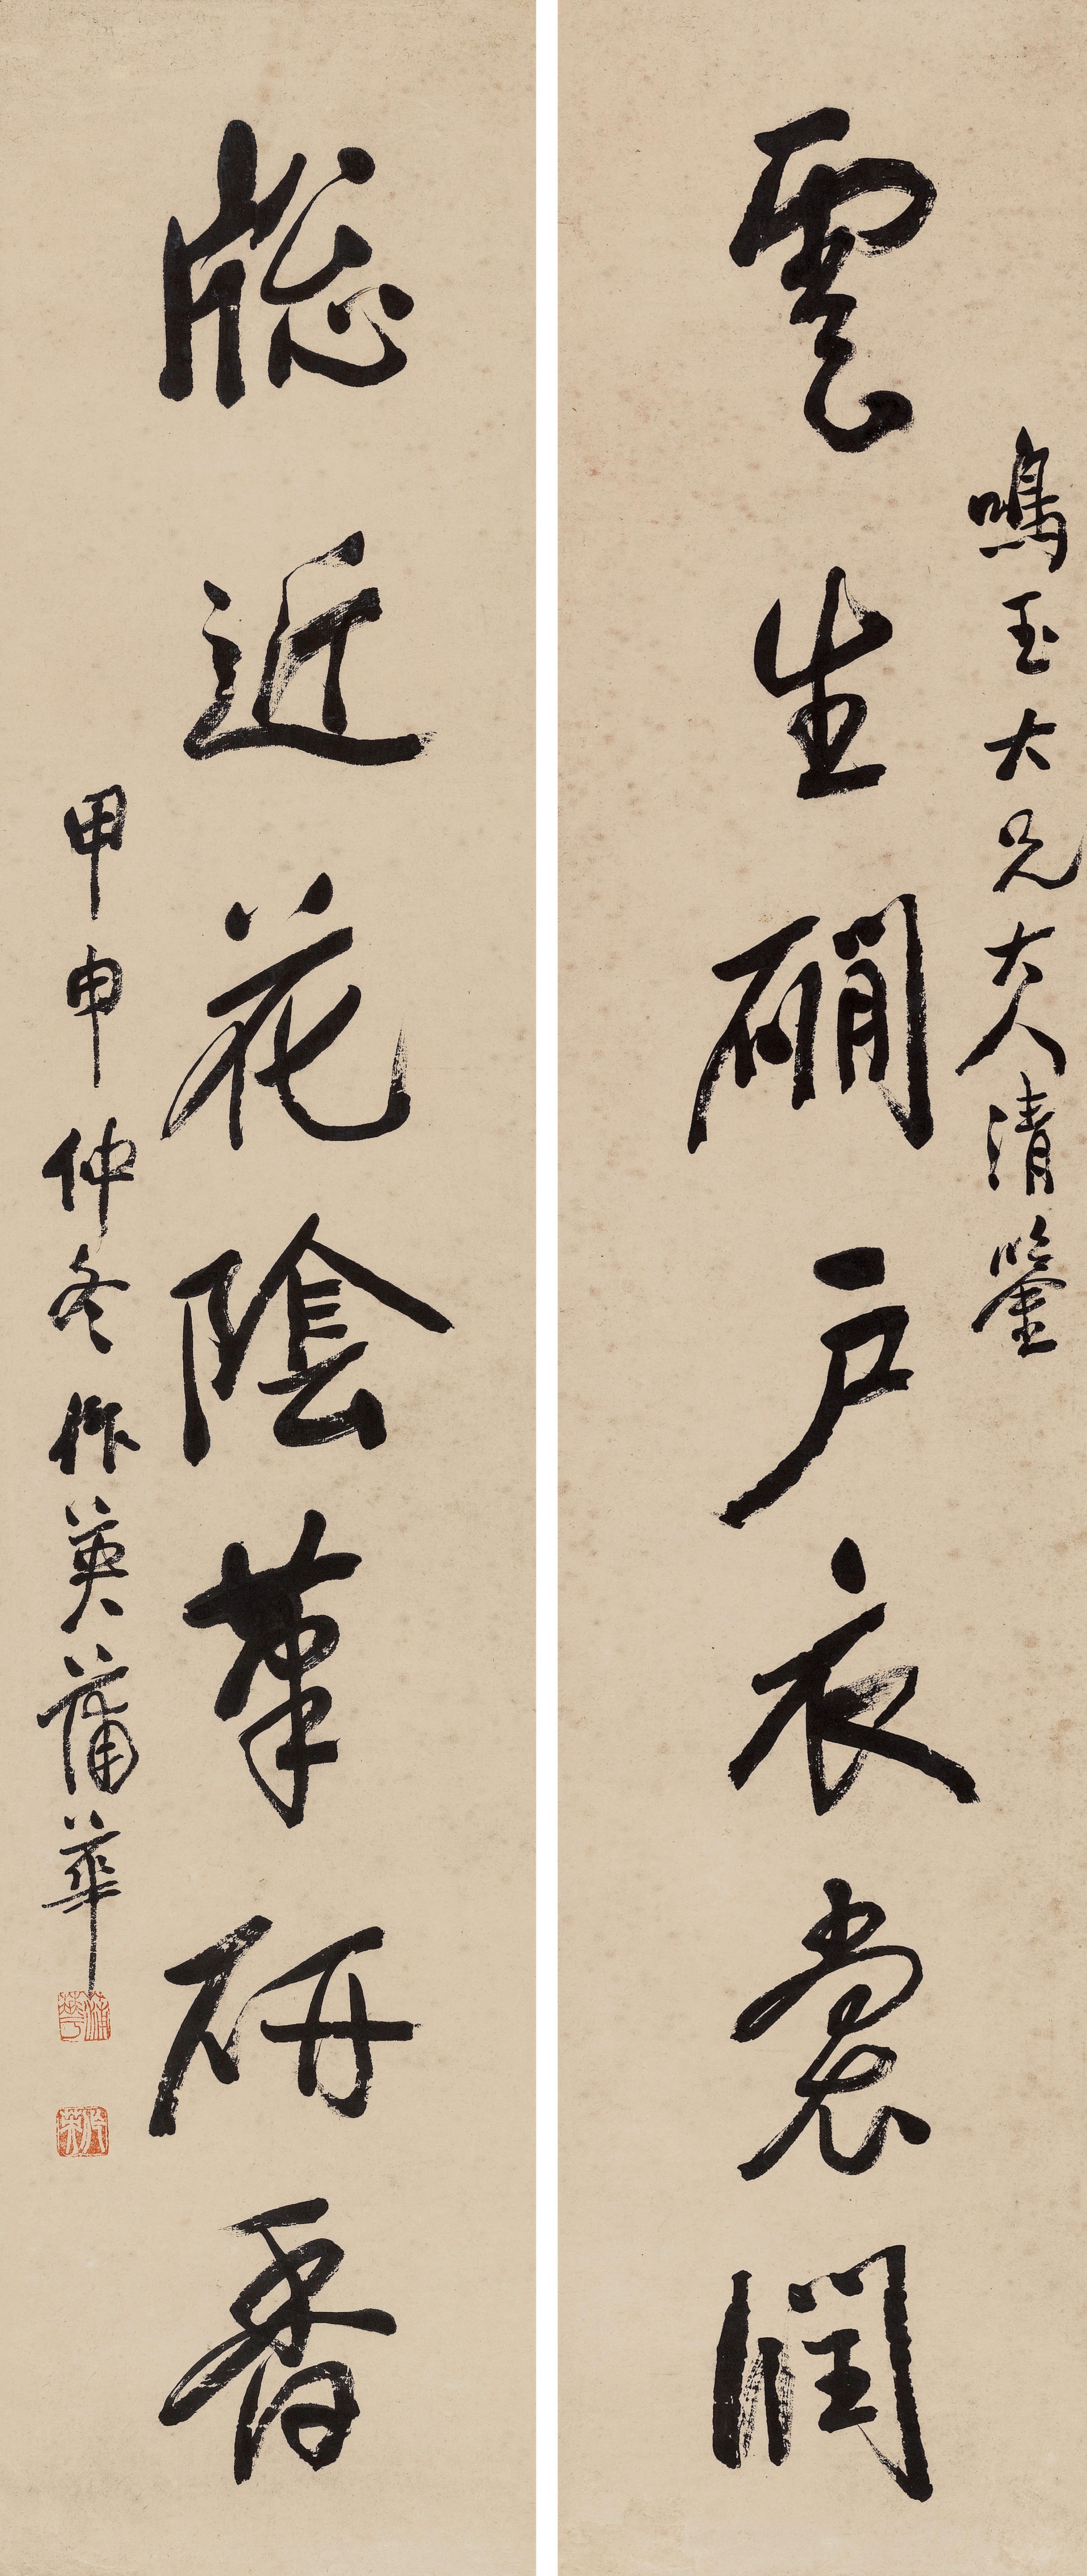 雲生磵戶衣裳潤
鳴玉大兄大人清鑒
牎近花陰筆研香
甲申仲冬作英蒲華
蒲華
作英